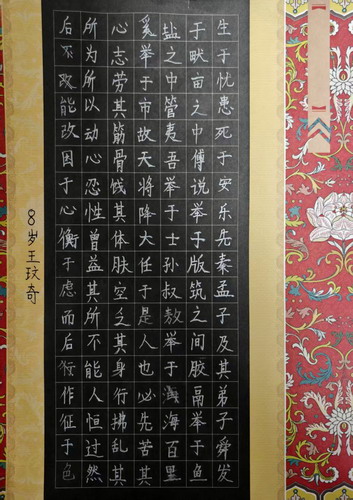 生于忧患死于安乐先秦孟子及其弟子舜发
于畎亩之中傅说举于版筑之间胶鬲举于鱼
盐之中管夷吾举于士孙叔敖举于海百里
奚举于市故天将降大任于是人也必先苦其
心志劳其筋骨饿其体肤空乏其身行拂乱其
所为所以动心忍性曾益其所不能人恒过然
后不改能改困于心衡于虑而后作征于色
8岁王玟奇